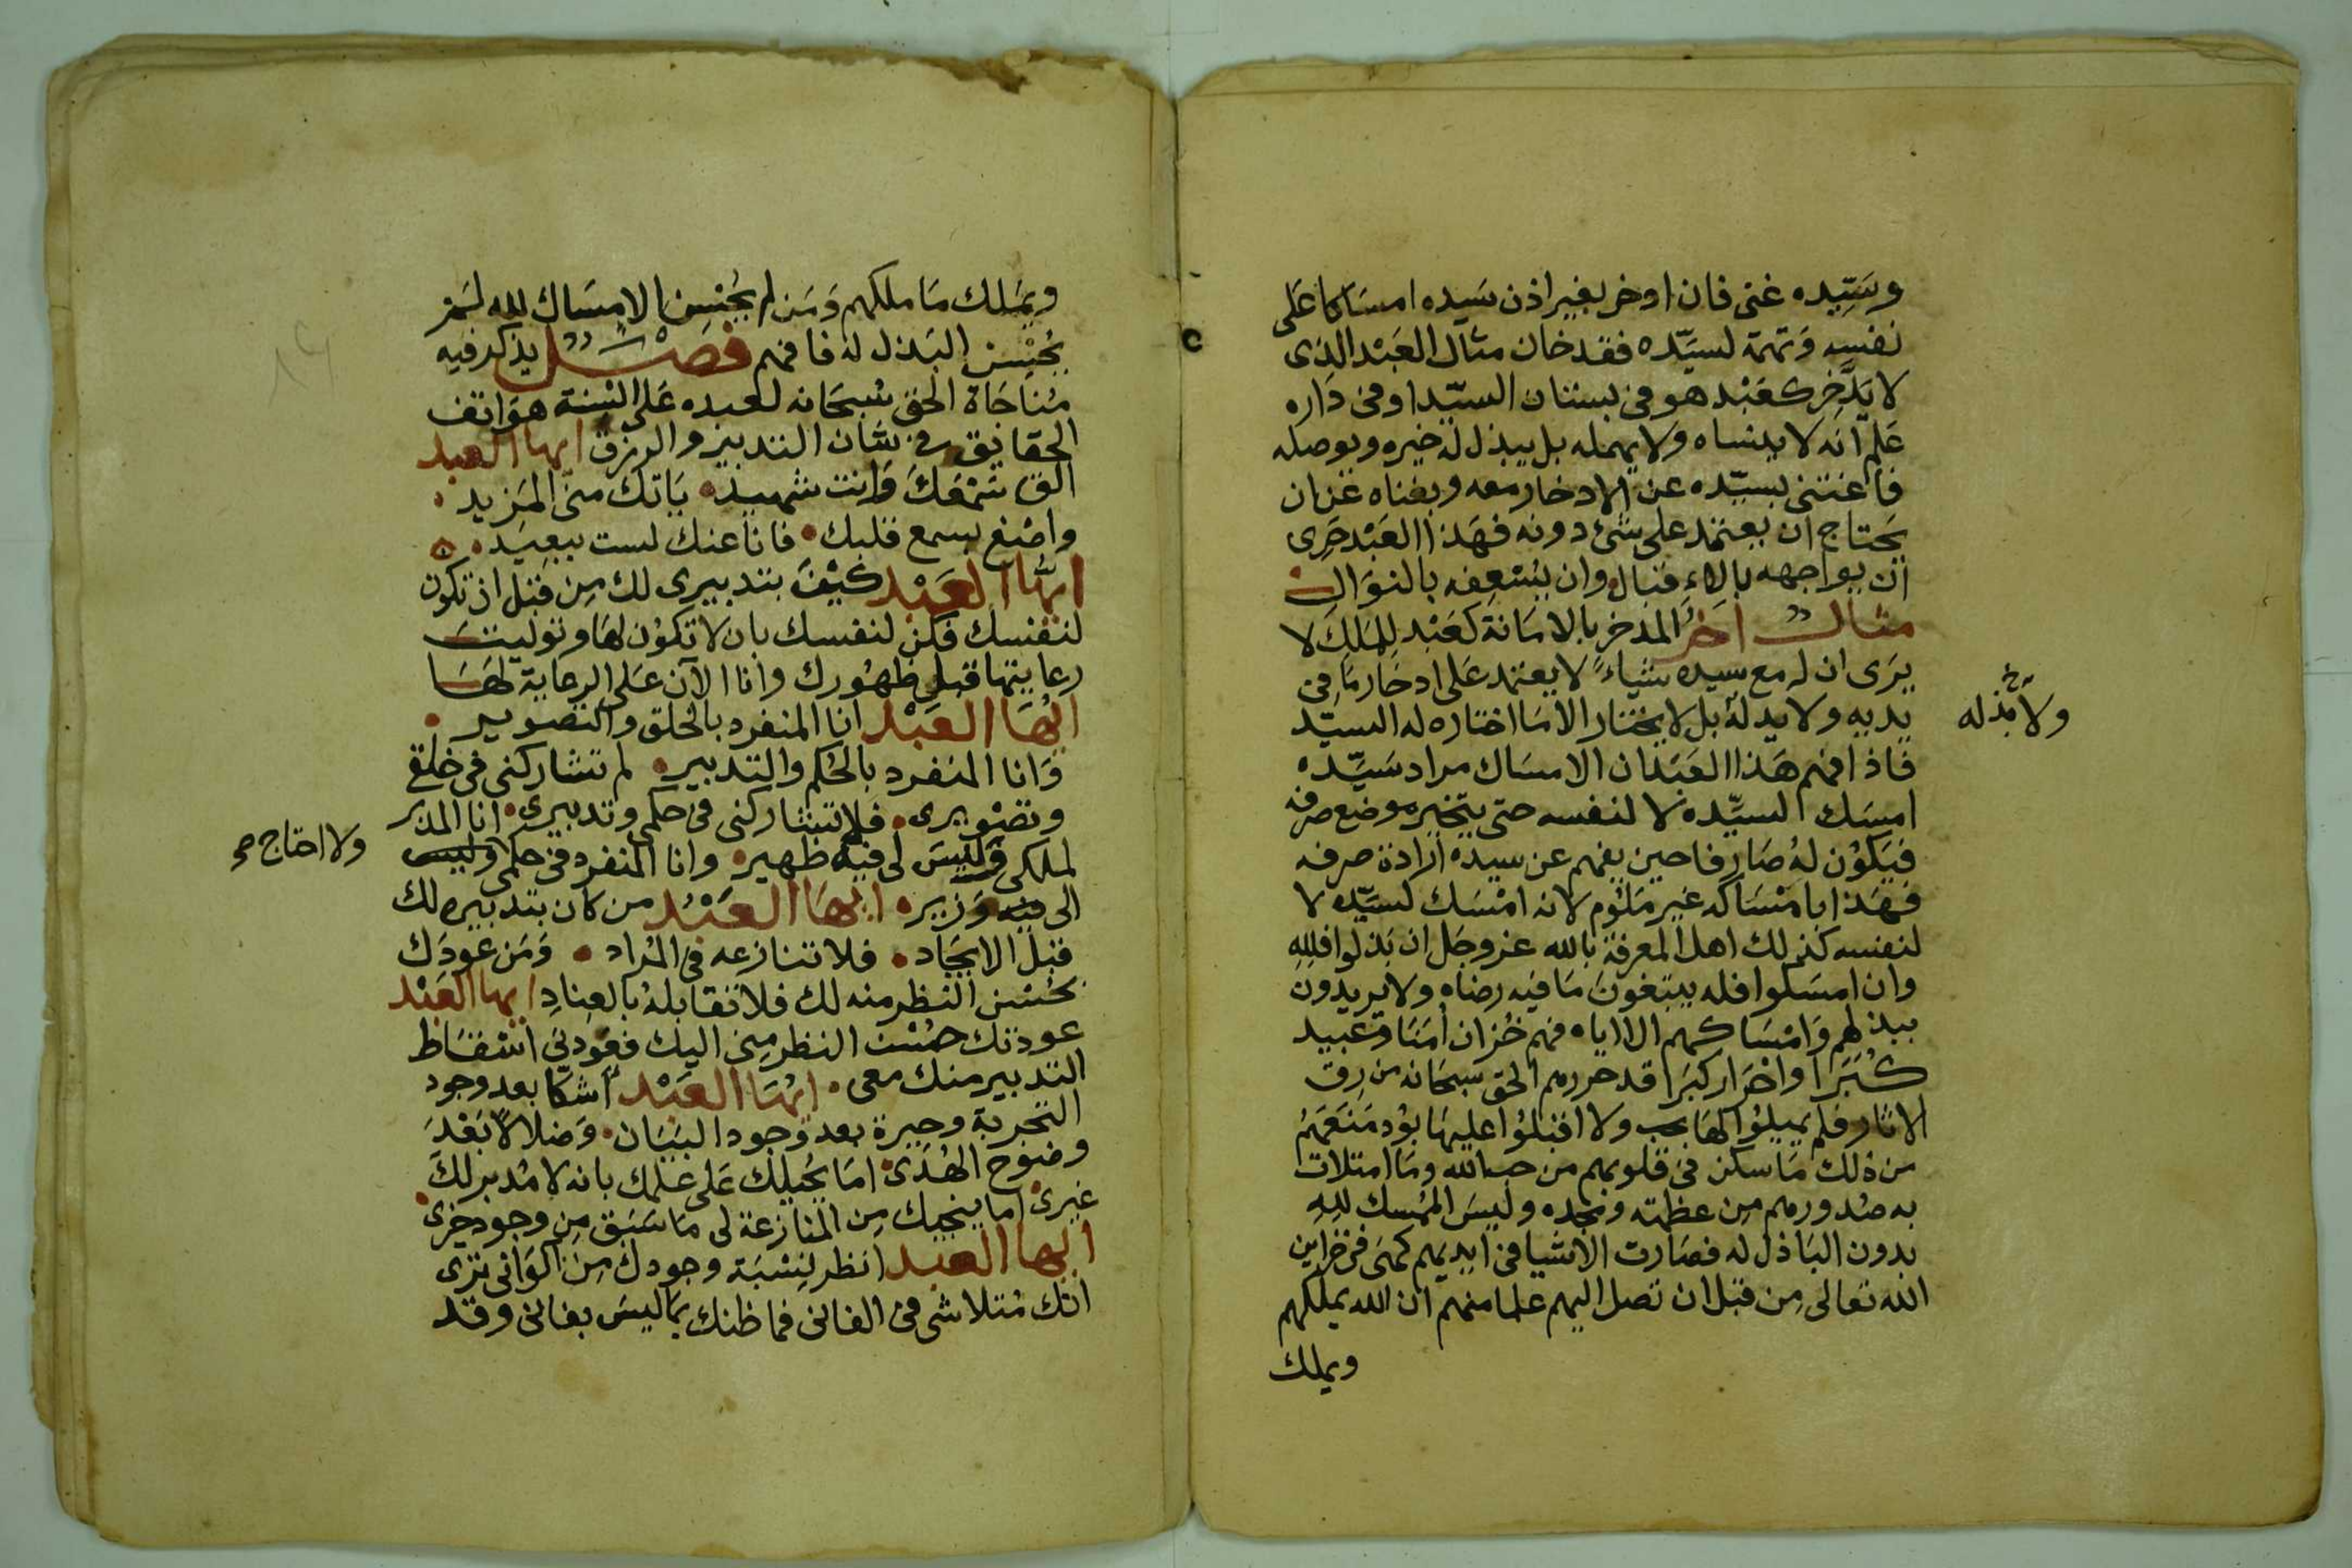 وسَيِّده غنى فان ادخر بغير اذن سَيده امسَاكا عَلى
نفسِه وَتهمة لسيَّده فقد خان مثال العَبْد الذى
لا يَدَّخِر كعَبْد هو فى بستان السيّد او فى دَاره
عَلم اَنه لا ينساه ولا يهمله بل يبذل لهُ خيره ويوصله
فاغتنى بسيّده عن الادخار معه وبغناه عَن ان
يحَتاج ان يعتمد على شئ دونه فهَذا العَبْد حَرِى
ان يواجهه بالاِقبال وان يُسْعِفه بالنوَال
مثال اخرُ المدخر بالامَانة كعَبْدٍ لِلمَلِكِ لا
يَرَى ان له مع سيده شياءً لا يعتمد عَلى ادخار مَا فى
يديه ولا يد لهُ بل لا يختار الا مَا اختاره له السيّد
ولا بذله
فاذا فهم هَذا العَبْد ان الامسَاك مراد سَيِّده
امسَك لسيِّده لا لنفسه حتى يتخير موضع صرفه
فيَكوُن لهُ صَارفا حين يفهم عن سيده ارادة صرفه
فهَذا بامْسَاكه غير مَلوُم لانه امْسَك لسَيّده لا
لنفسه كذلك اهل المعرفة بالله عز وجَل ان بَذلوا فلِلهِ
وان امسَكوا فله يبتغون مَا فيه رضاه ولا يريدون
ببذلهم وَامْسَاكهم الا اياه فهم خُزان امَنَا وَعبيد
كُبَرَا واحْرَار كبَرَا قد حررهم الحق سبحَانه من رِق
الاثار فلم يميلوُا لهَا بحب ولا اقبلوُا عليهَا بوُد مَنعَهمُ
من ذلك مَا سكن فى قلوبهم من حب الله ومَا امتلات
به صُدورهم مِن عظمته ومجده وليسَ الممْسك للهِ
بدون البَاذل له فصَارت الاشيا فى ايديهم كهىَ فى خزاين
الله تعالى مِن قبل ان تصل اليهم علما منهم ان الله يملكهم
ويملك
ويَملك مَا ملكهم وَمَن لم يحُسِن الامسَاك لله لم
يحُسِن البَذل لهُ فافهم فصْل يذكر فيه
مُناجَاة الحَق سُبحَانه لعبده عَلى السِنة هوَاتف
الحقايق فى شان التدبير والرزق ايها العبد
الق سَمْعَكَ وَانت شهيد يَاتك منى المَزيد
واصْغ بسمع قلبك فانا عنك لست ببعِيد
ايُّها العَبْد كُنتُ بتدبيرى لك مِن قبل ان تكون
لنفسك فكن لنفسك بان لا تكوُن لهَا وتوليتُ
رعايتها قبل ظهُورك وانا الآن عَلى الرعاية لهَا
ايُّهَا العَبْد انا المنفرد بالخلق والتصوير
وَانا المنفرد بالحُكم والتدبير لم تشاركنى فى خلقى
وتصْويرى فلا تشاركنى فى حكمى وتدبيرى انا المدبر
لملكى وَليسَ لى فيه ظهير وانا المنفرد فى حكمى وليس
ولا احتاج صح
الى فيه وَزير ايهَا العَبْد من كان بتدبيره لك
قبل الايجَاد فلا تنازعه فى المُراد وَمَن عودَك
بحُسْن النظر منه لك فلا تقابلهُ بالعِنادِ ايها العَبْد
عودتك حُسْن النظر مِنى اليك فعَوِدنى اسْقاط
التدبير منك معى ايُهَا العَبْد اشكا بعد وجود
التجربة وحيرة بعد وجود البَيَان وَضلالاً بَعْدَ
وضوُح الهُدَى امَا يحُيلك عَلى علمك بانه لا مُدبر لكَ
غيرى اما ينجيك مِن المنازعة لى مَا سَبق مِن وجود خيرى
ايها العبد انظر لِنسْبَة وجودك مِن اكوَانى ترى
انك مُتلاشى فى الفانى فما ظنك بمَا ليسَ بفانى وقد